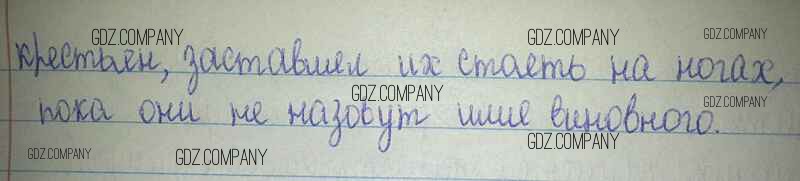 крестьян, заставлял их стоять на ногах,
пока они не назовут имя виновного.
GDZ.COMPANY
GDZ.COMPANY
GDZ.COMPANY
GDZ.COMPANY
GDZ.COMPANY
GDZ.COMPANY
GDZ.COMPANY
GDZ.COMPANY